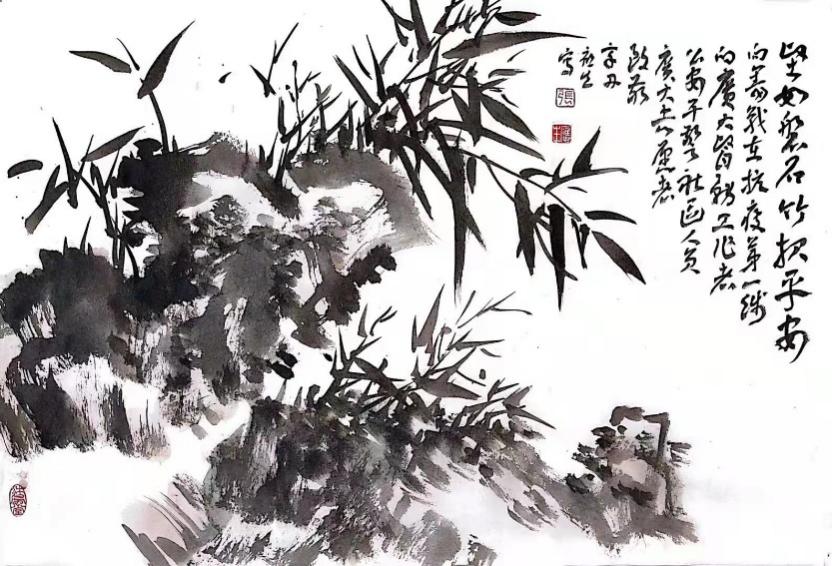 坚如磐石竹报平安
向奋战在抗疫第一线
的广大医务工作者
公安干警社区人员
广大志愿者
致敬
辛丑
应生
写
張